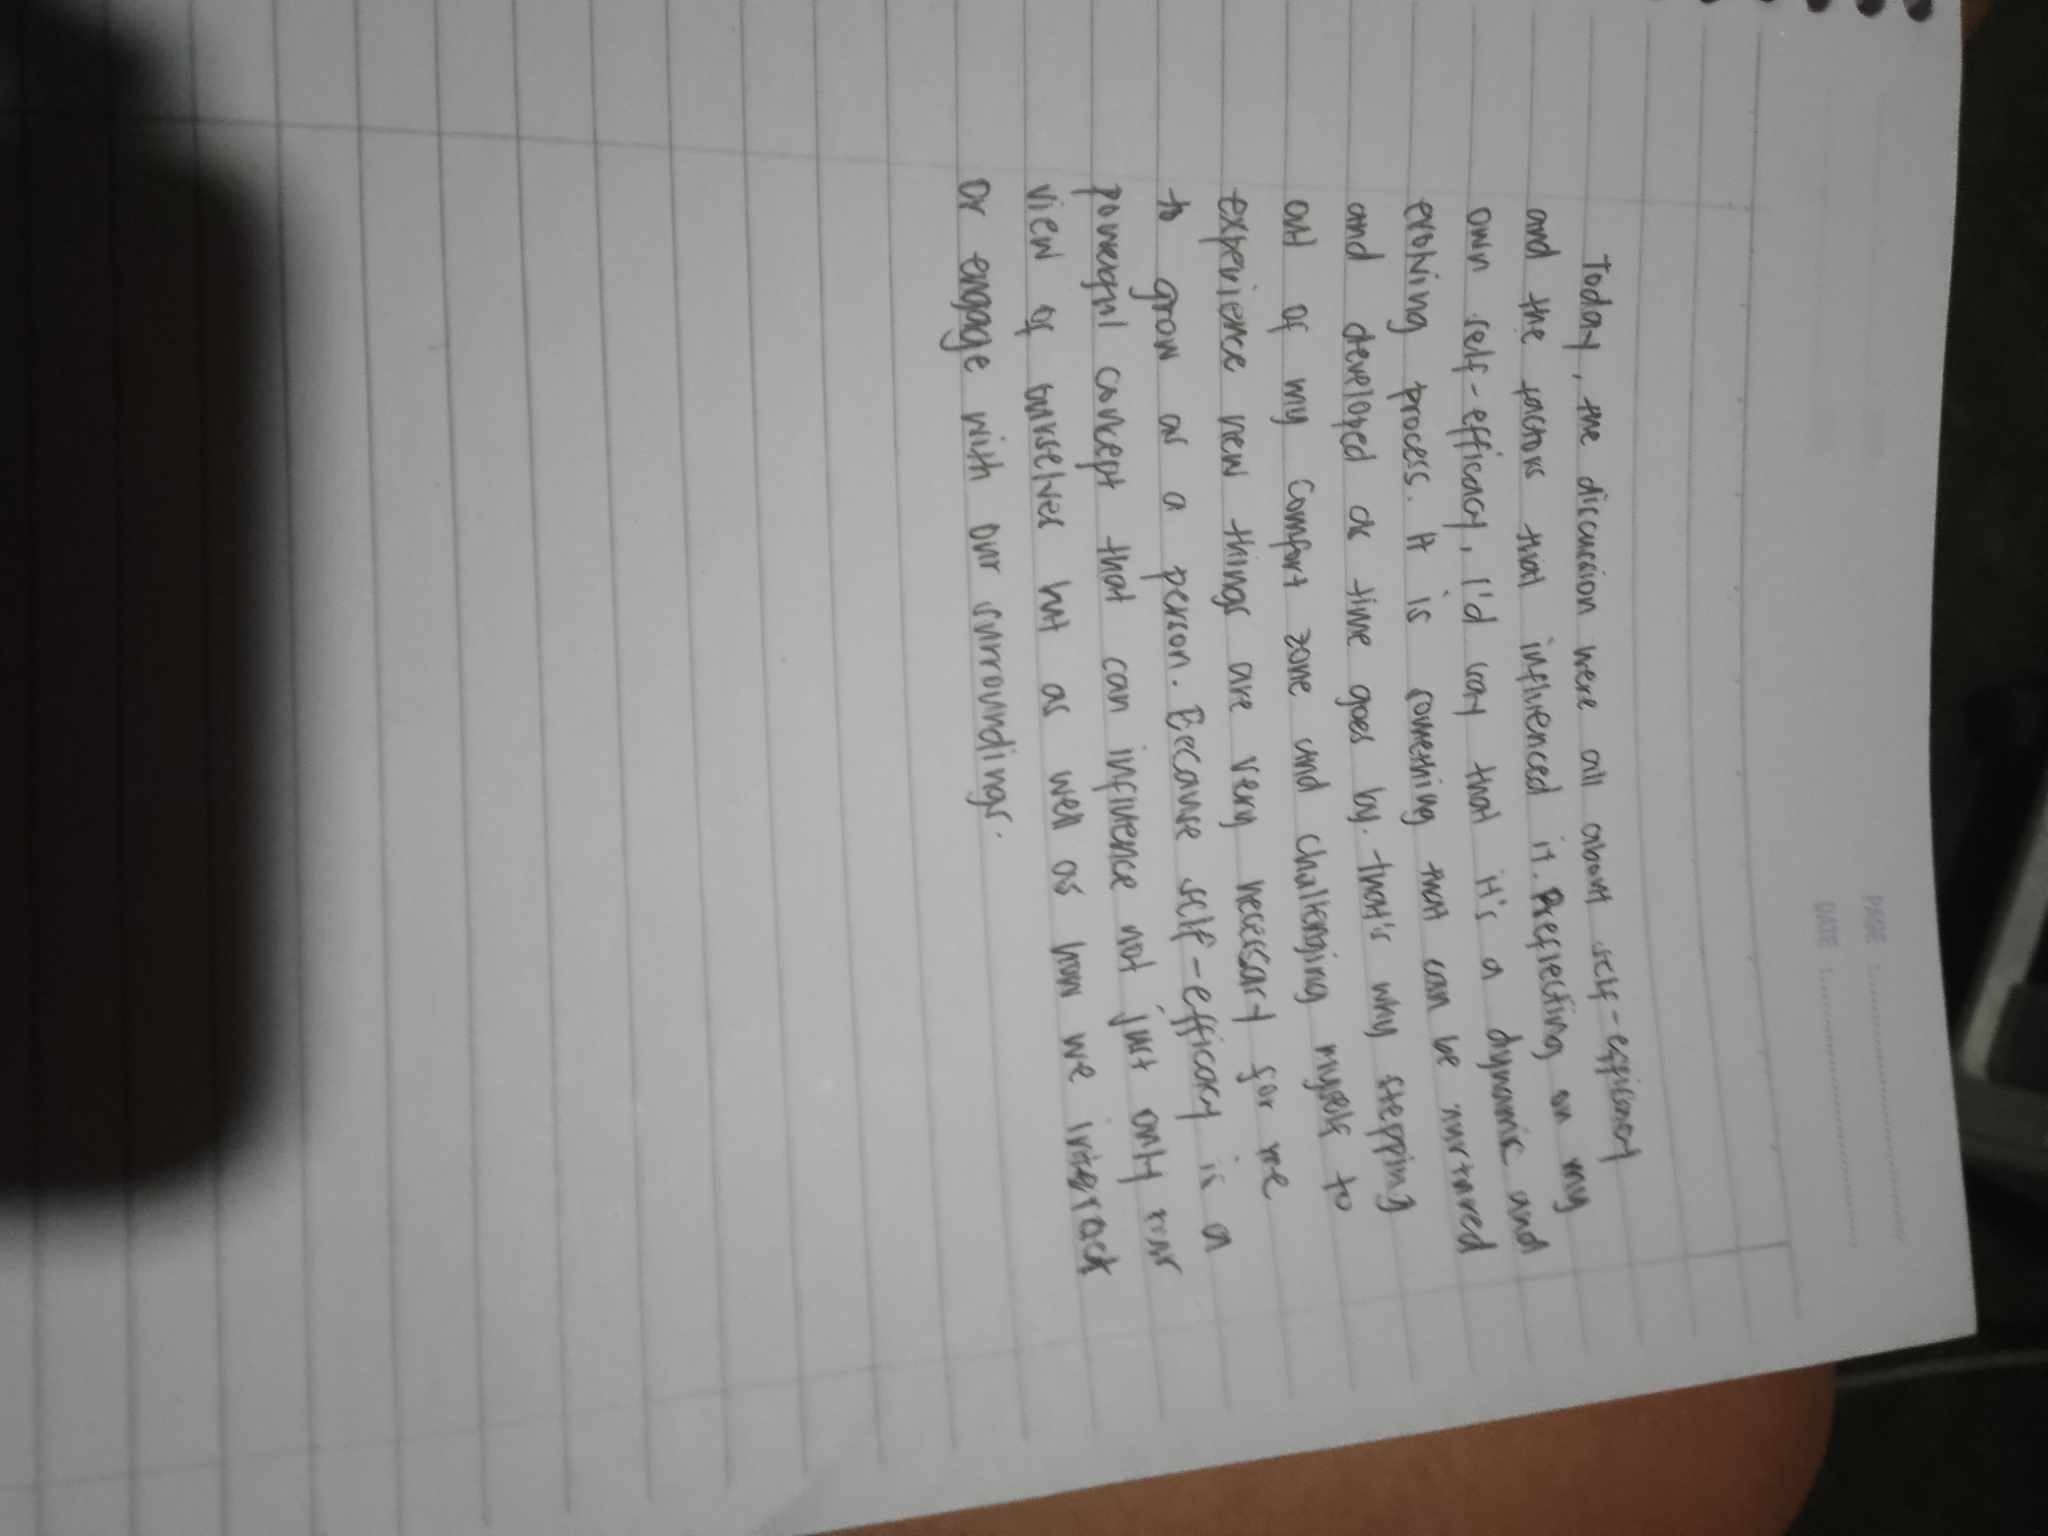 PAGE :
DATE :
Today, the discussion were all about self-efficacy
and the factors that influenced it. Reflecting on my
own self-efficacy, I'd say that it's a dynamic and
evolving process. It is something that can be nurtured
and developed as time goes by. that's why stepping
out of my comfort zone and challenging myself to
experience new things are very necessary for me
to grow as a person. Because self-efficacy is a
powerful concept that can influence not just only
view of ourselves but as well as how we interact
or engage with our surroundings.